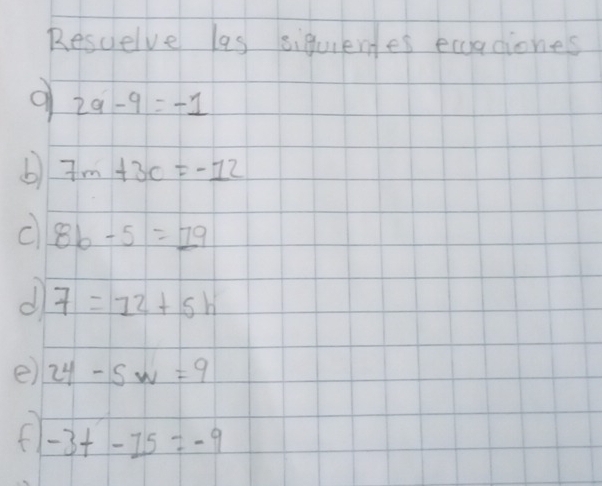 Resuelve las siguientes ecuaciones
a) 2a - 9 = -1
b) 7m + 30 = -12
c) 8b - 5 = 19
d) 7 = 12 + 5h
e) 24 - 5w = 9
f) -3t - 15 = -9